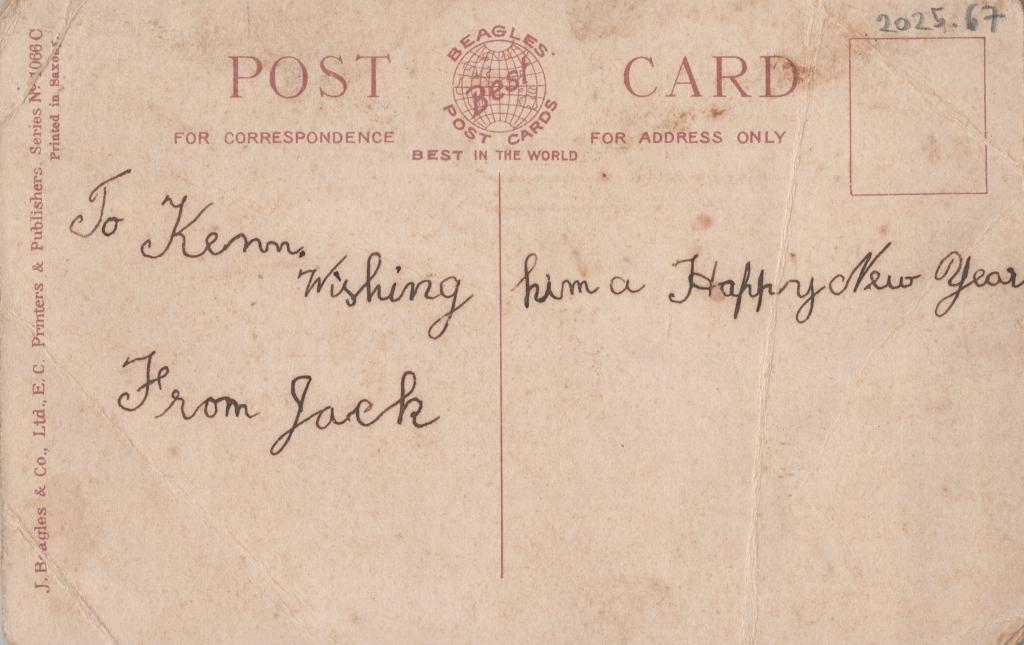 2025.67
POST CARD
BEAGLES'
Best
POST CARDS
FOR CORRESPONDENCE
FOR ADDRESS ONLY
BEST IN THE WORLD
To Kenn.
Wishing him a Happy New Year
From Jack
J. Beagles & Co., Ltd., E. C. Printers & Publishers. Series Nº 1066 C
Printed in Saxony.